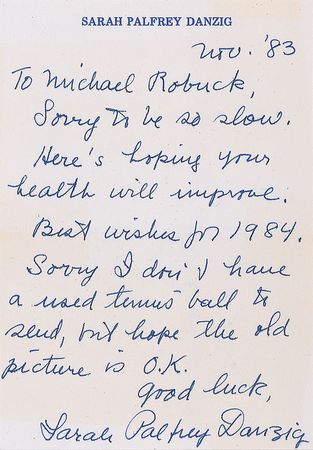 SARAH PALFREY DANZIG
Nov. '83
To Michael Robuck,
Sorry to be so slow.
Here's hoping your
health will improve.
Best wishes for 1984.
Sorry I don't have
a used tennis ball to
send, but hope the old
picture is O.K.
Good luck,
Sarah Palfrey Danzig